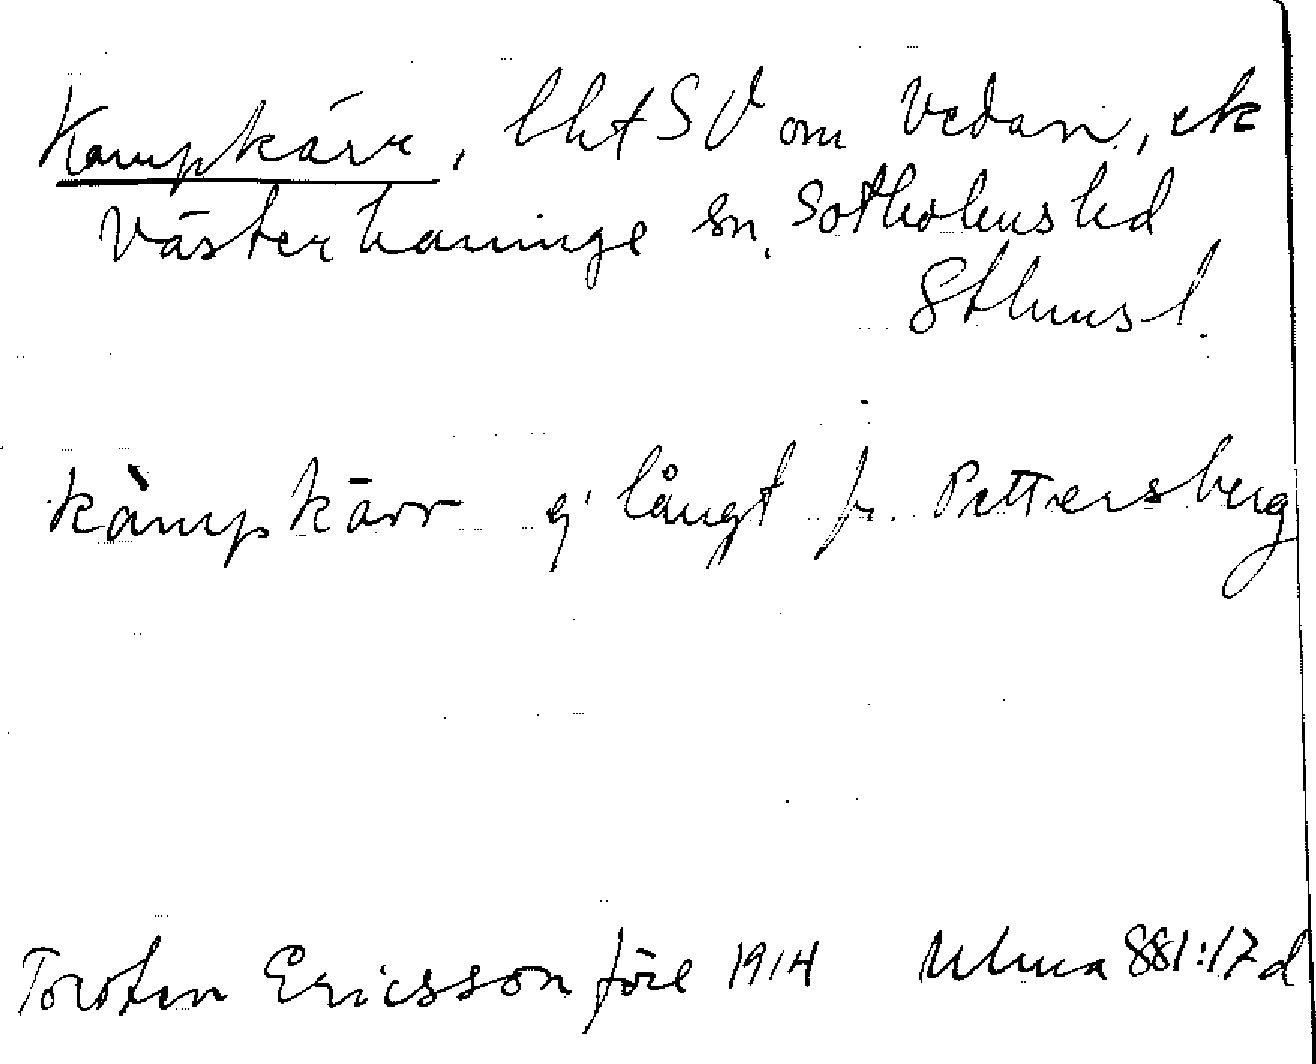 Kampkärr, lht SV om Vedan, ek
Västerhaninge sn, Sotholms hd
Sthms l.
kàmpkärr ej långt fr. Pettersberg
Torsten Ericsson före 1914 Ulma 881:17d